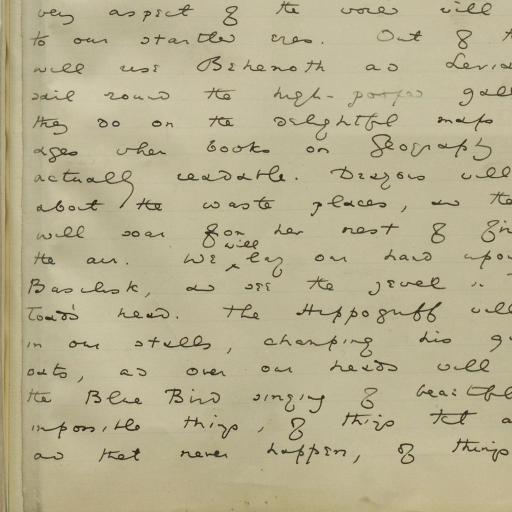 very aspect of the world will
to our startled eyes. Out of
will rise Behemoth and Levia
sail round the high-pooped gall
they do on the delightful maps
ages when books on geography
actually readable. Dragons will
about the waste places, and the
will soar from her nest of fir
the air. We will lay our hand upon
Basilisk, and see the jewel in
toad's head. The Hippogriff will
in our stalls, champing his g
oats, and over our heads will
the Blue Bird singing of beautiful
impossible things, of things that a
and that never happen, of things